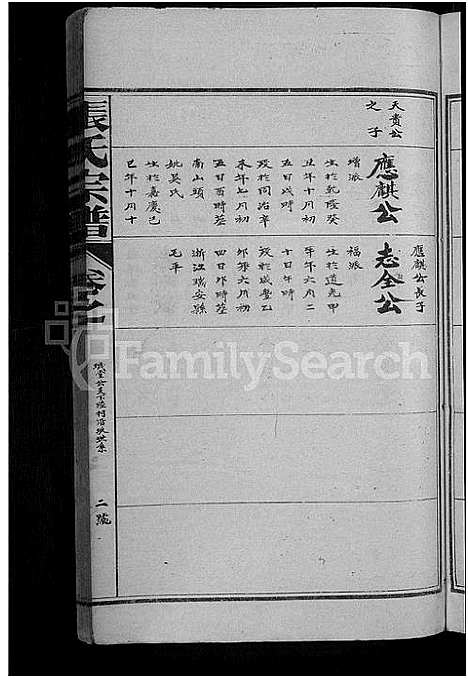 天貴公
之子
應麒公
增派
生於乾隆癸
丑年十月初
五日戌時
歿於同治辛
未年七月初
五日酉時塟
南山頭
姚吳氏
生於嘉慶己
巳年十月十
應麒公長子
志全公
福派
生於道光甲
午年六月二
十日午時
歿於咸豐乙
卯年六月初
四日卯時塟
浙江瑞安縣
毛平
張氏宗譜
卷之
二號
FamilySearch